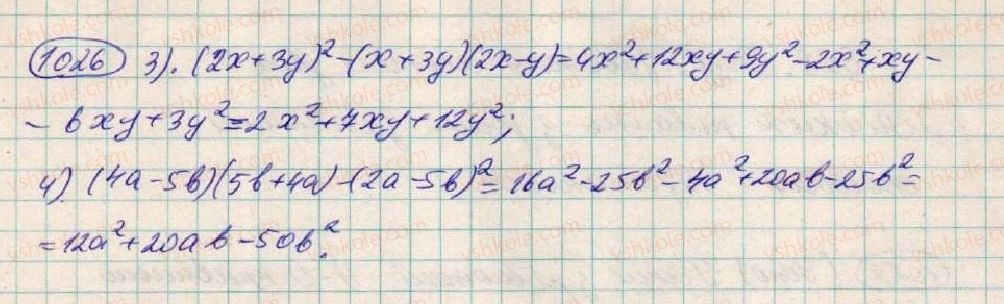 1026 3). (2x+3y)²-(x+3y)(2x-y)=4x²+12xy+9y²-2x²+xy-
-6xy+3y²=2x²+7xy+12y²;
4) (4a-5b)(5b+4a)-(2a-5b)²=16a²-25b²-4a²+20ab-25b²=
=12a²+20ab-50b².